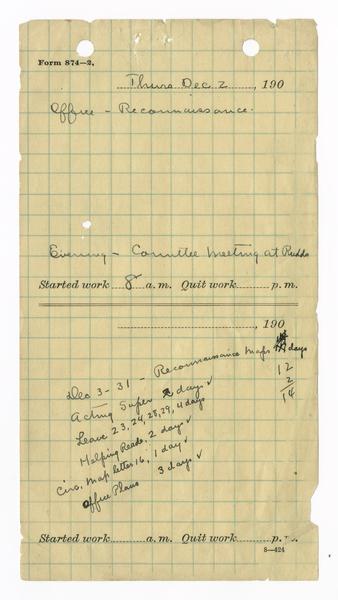 Form 874—2.
Thurs Dec 2, 190
Office – Reconnaissance.
Evening – Committee Meeting at Rudds
Started work 8 a.m. Quit work p.m.
, 190
Dec 3-31 – Reconnaissance Maps days
12
2
14
Acting Super 2 days ✓
Leave 23, 24, 28, 29, 4 days
Helping Reade, 2 days ✓
Circ. Map letter 16, 1 day ✓
Office Plans 3 days ✓
Started work a.m. Quit work p.m.
8—424